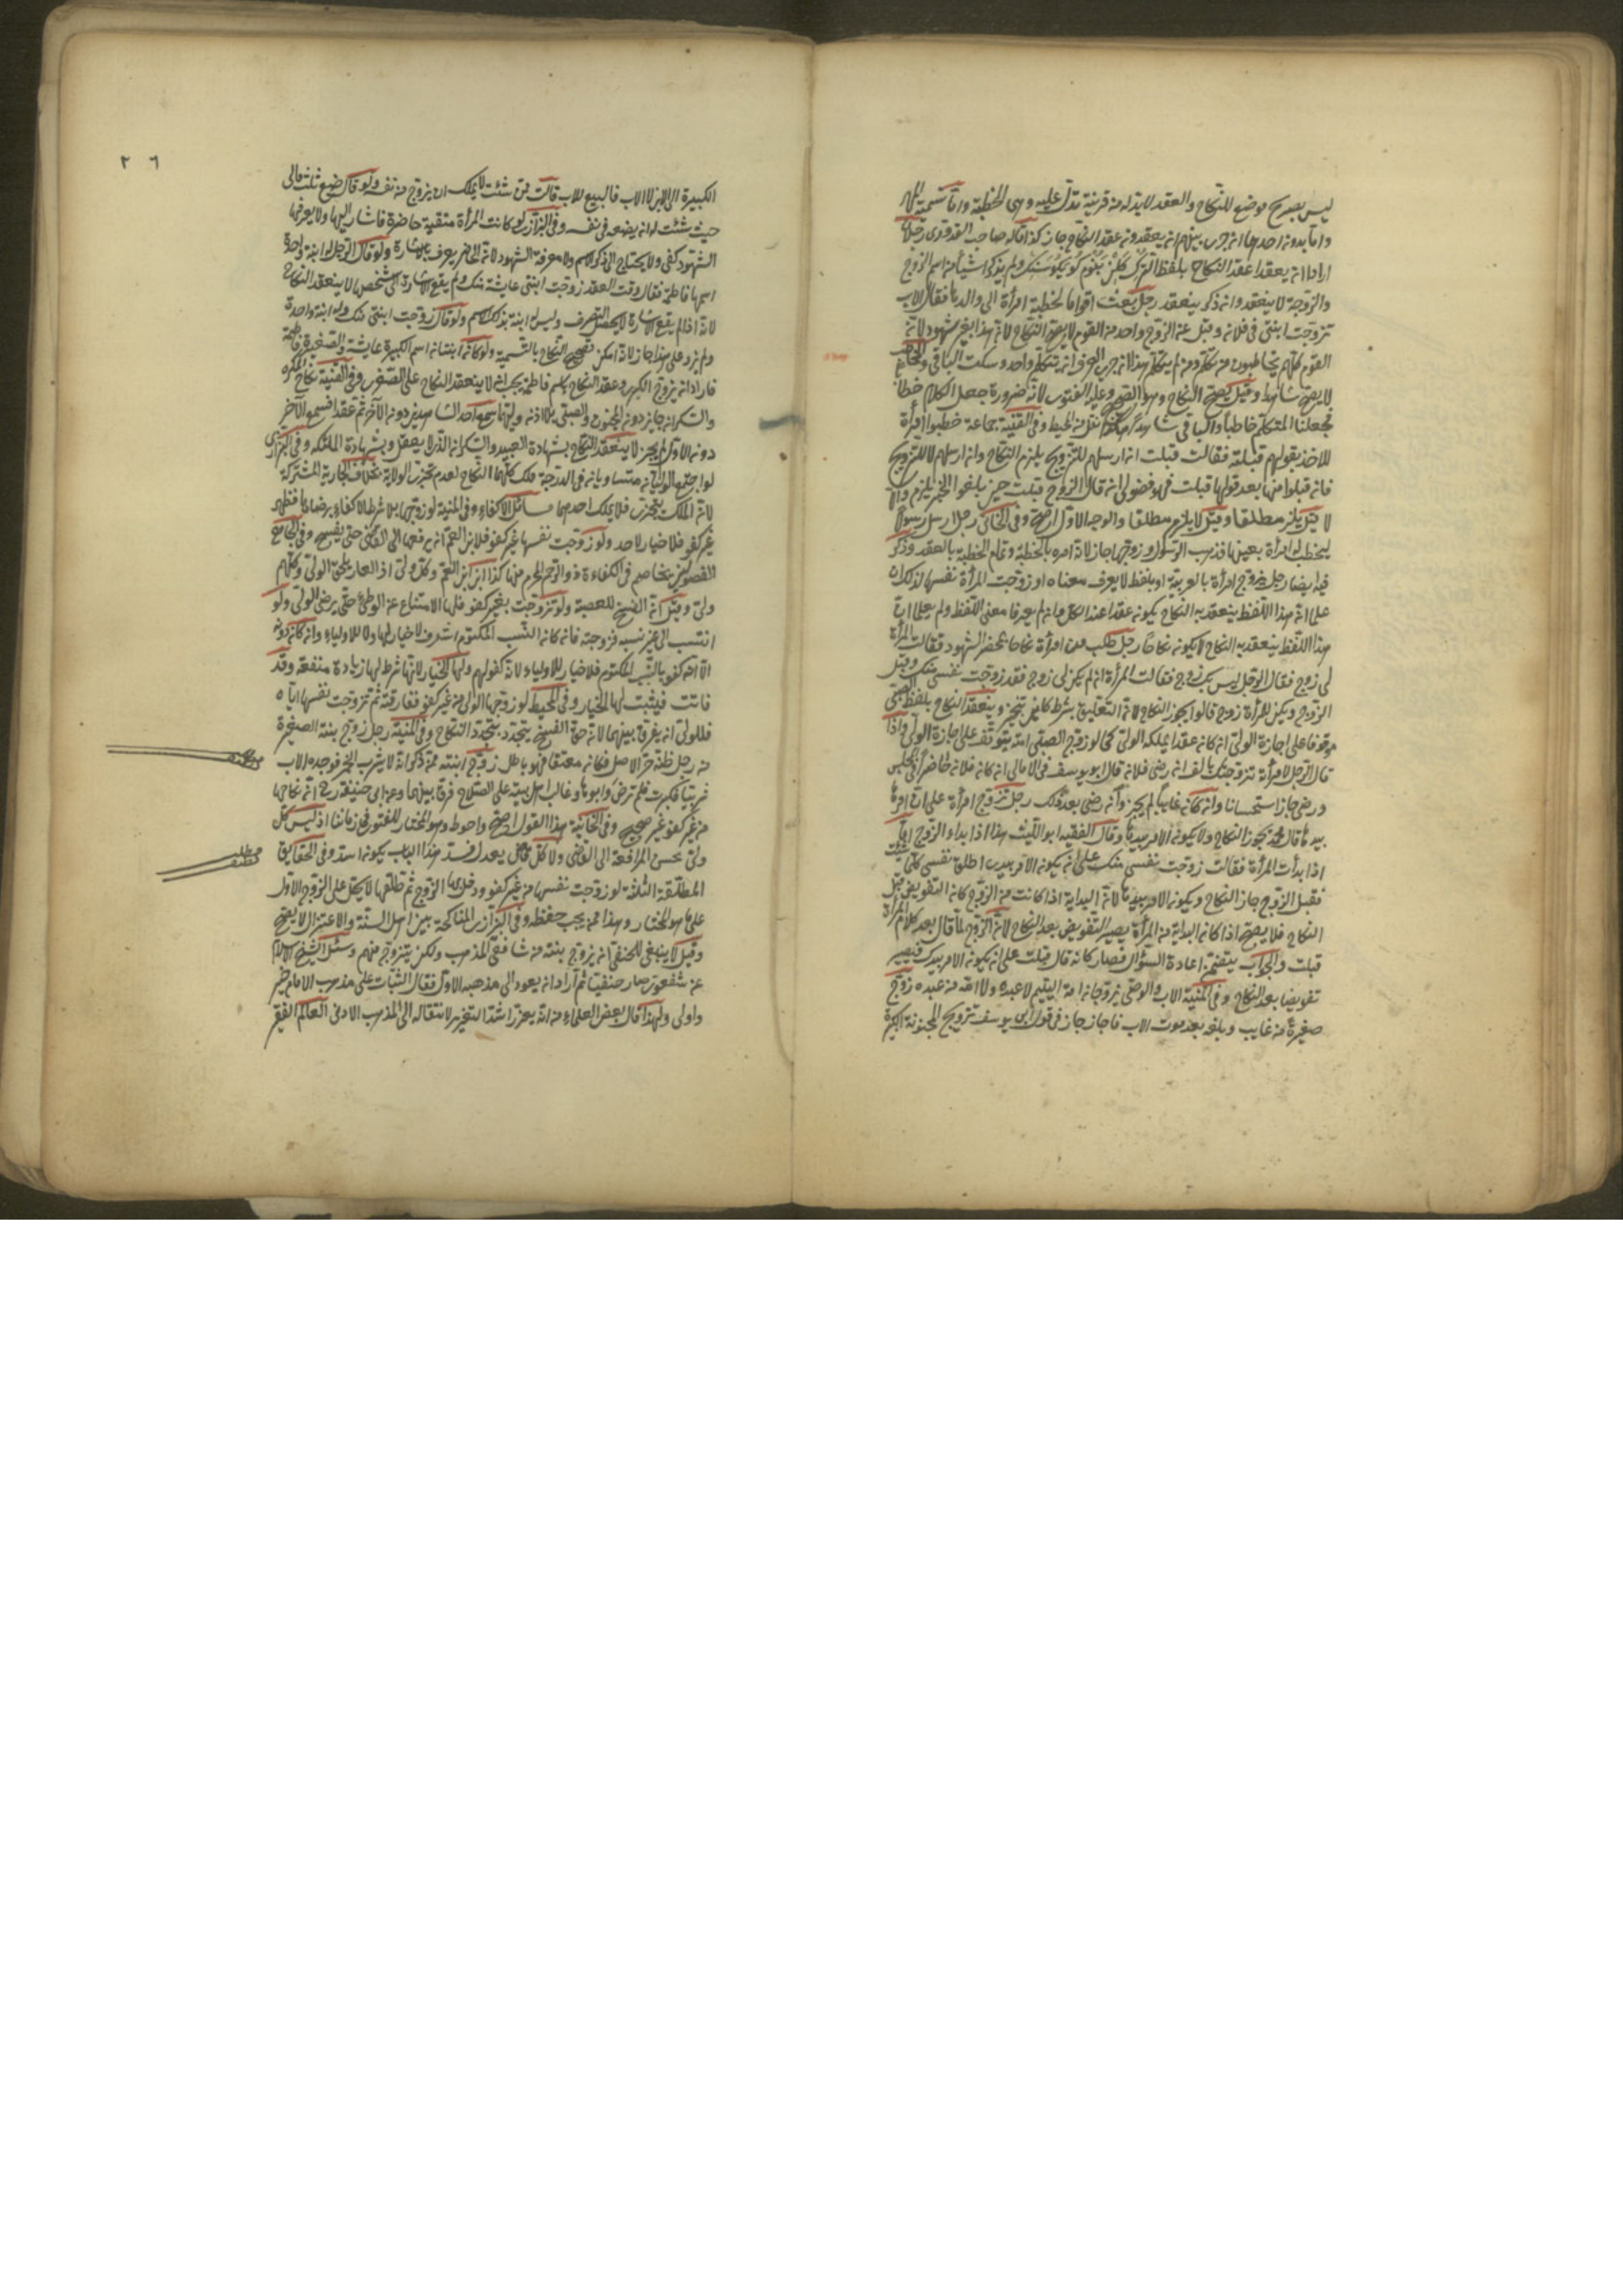 ليس بصريح موضع للنكاح والعقد لا بد له من قرينة تدل عليه وهي الخطبة واما تسمية المهر
واما بدونه احدهما انه جرى بينهم انه يعقدون عقد النكاح جاز كذا قاله صاحب القدوري رجلان
ارادا ان يعقدا عقد النكاح بلفظ الترك ولم يذكرا شيأ من اسم الزوج
والزوجة لا ينعقد وان ذكر ينعقد رجل بعث اقواما لخطبة امرأة الى والدها فقال الاب
تزوجت ابنتي فلانة وقبل عن الزوج واحد من القوم لا يصح النكاح لانه هذا بغير شهود لانه
القوم كلهم يخاطبون من تكلم ومن لم يتكلم هذا لانه جرى العرف انه يتكلم واحد وسكت الباقي والخاطب
لا يصح شاهدا وقيل يصح النكاح وهو الصحيح وعليه الفتوى لانه ضرورة جعل الكلام خطابا
فجعلنا المتكلم خاطبا والباقي شاهدا هكذا نقل من المحيط وفي القنية جماعة خطبوا امرأة
للاخذ بقولهم قبلته فقالت قبلت ان ارسلهم للتزويج يلزم النكاح وان ارسلهم لا للتزويج
فان قبلوا منها بعد قولها قبلت فهو فضولي ان قال الزوج قبلت حين بلغوا الخبر يلزم والا
لا قيل يلزم مطلقا وقيل لا يلزم مطلقا والوجه الاول اصح وفي الخاني رجل ارسل رسولا
ليخطب له امرأة بعينها فذهب الرسول وزوجها جاز لانه امره بالخطبة وتمام الخطبة بالعقد وذكر
فيه ايضا رجل يزوج امرأة بالعربية او بلفظ لا يعرف معناه او زوجت المرأة نفسها لذلك ان
علما ان هذا اللفظ ينعقد به النكاح يكون عقدا عند الكل وان لم يعرفا معنى اللفظ ولم يعلما ان
هذا اللفظ ينعقد به النكاح لا يكون نكاحا رجل طلب من امرأة نكاحا بمحضر الشهود فقالت المرأة
لي زوج فقال الرجل ليس لك زوج فقالت المرأة ان لم يكن لي زوج فقد زوجت نفسي منك وقبل
الزوج ولم يكن للمرأة زوج قالوا يجوز النكاح لانه التعليق بشرط كائن تنجيز وينعقد النكاح بلفظ الصبي
موقوفا على اجازة الولي ان كان عقدا يملكه الولي كما لو زوج الصبي امته يتوقف على اجازة الولي واذا
قال الرجل لامرأة تزوجتك بالف ان رضي فلان قال ابو يوسف في الامالي ان كان فلان حاضرا في المجلس
ورضي جاز استحسانا وان كان غائبا لم يجز وان رضي بعد ذلك رجل تزوج امرأة على ان امرها
بيدها قال محمد يجوز النكاح ولا يكون الامر بيدها وقال الفقيه ابو الليث هذا اذا بدأ الزوج اما
اذا بدأت المرأة فقالت زوجت نفسي منك على ان يكون الامر بيدي اطلق نفسي كلما شئت
فقبل الزوج جاز النكاح ويكون الامر بيدها لانه البداية اذا كانت من الزوج كان التفويض قبل
النكاح فلا يصح اذا كانت البداية من المرأة يصير التفويض بعد النكاح لانه الزوج لما قال بعد كلام المرأة
قبلت والجواب يتضمن اعادة السؤال فصار كانه قال قبلت على ان يكون الامر بيدك فيصير
تفويضا بعد النكاح وفي المنية الاب والوصي يزوجان امة اليتيم لا عبده ولا امته من عبده زوج
صغيرة من غايب وبلغه بعد موت الاب فاجاز جاز في قول ابي يوسف تزويج المجنونة الكبيرة
٢٦
الكبيرة الى الابن لا الاب فالبيع للاب قالت ممن شئت لا يملك ان يزوج من نفسه ولو قال ضع ثلث مالي
حيث شئت له ان يضعه في نفسه وفي البزازي لو كانت المرأة متنقبة حاضرة فاشار اليها ولا يعرفها
الشهود كفى ولا يحتاج الى ذكر الاسم ولا معرفة الشهود لانه الحاضر يعرف بالاشارة ولو قال الرجل له ابنة واحدة
اسمها فاطمة فقال وقت العقد زوجت ابنتي عايشة منك ولم يقع الاشارة الى شخصها لا ينعقد النكاح
لانه اذا لم يقع الاشارة لا يحصل التعريف وليس له ابنة بذلك الاسم ولو قال زوجت ابنتي منك وله ابنة واحدة
ولم يزد على هذا جاز لانه امكن تصحيح النكاح بالتسمية ولو كانت ابنتان اسم الكبيرة عايشة والصغيرة فاطمة
فاراد ان يزوج الكبرى وعقد النكاح باسم فاطمة يجب ان لا ينعقد النكاح على الصغرى وفي القنية نكاح المكره
والسكران جايز دون المجنون والصبي بلا اذن وليهما سمع احد الشاهدين دون الآخر ثم عقد فسمع الآخر
دون الاول لم يجز لا ينعقد النكاح بشهادة العبيد والسكران الذي لا يعقل وبشهادة الملئكة وفي البزازي
لو اجتمع الوليان متساويان في الدرجة ملك كلهما النكاح لعدم تجزئ الولاية بخلاف الجارية المشتركة
لانه الملك يتجزئ فلا يملك احدهما مسائل الاكفاء وفي المنية لو زوجها بلا شرط الاكفاء برضاها فظهر
غير كفو فلا خيار لاحد ولو زوجت نفسها غير كفو فلابن العم ان يرفعها الى القاضي حتى يفسخ وفي الجامع
الفصولين يتخاصم في الكفاءة ذو الرحم المحرم منها كذا ابن ابن العم وكل ولي اذ العار يلحق الولي وكلهم
ولي وقيل ان الفسخ للعصبة ولو تزوجت بغير كفو فلها الامتناع عن الوطئ حتى يرضى الولي ولو
انتسب الى غير نسبه فزوجته فان كان النسب المكتوم اشرف لا خيار لها ولا للاولياء وان كان دونه
الا انه كفو بالنسب المكتوم فلا خيار للاولياء لانه كفو لهم ولها الخيار لانها شرط لها زيادة منفعة وقد
فاتت فيثبت لها الخيار وفي المحيط لو زوجها الولي من غير كفو ففارقته ثم تزوجت نفسها اياه
فللولي ان يفرق بينهما لانه حق الفسخ يتجدد بتجدد النكاح وفي المنية رجل زوج بنته الصغيرة
من رجل ظنه حر الاصل فكان معتقا فهو باطل زوج ابنته ممن ذكر انه لا يشرب الخمر فوجده الاب
شريبا فكبرت فلم ترض وابوها وغالب اهل بيته على الصلاح فرق بينهما وعن ابي حنيفة رح ان نكاحها
من غير كفو غير صحيح وفي الخانية هذا القول اصح واحوط وهو المختار للفتوى في زماننا اذ ليس كل
ولي يحسن المرافعة الى القاضي ولا كل قاض يعدل فسد هذا الباب يكون اسد وفي الحقايق
المطلقة الثلاثة لو زوجت نفسها من غير كفو ودخل بها الزوج ثم طلقها لا يحل على الزوج الاول
على ما هو المختار وهذا مما يجب حفظه وفي البزازي المناكحة بين اهل السنة والاعتزال لا يصح
وقيل لا ينبغي للحنفي ان يزوج بنته من شافعي المذهب ولكن يتزوج منهم وسئل شيخ الاسلام
عن شفعوي صار حنفيا ثم اراد ان يعود الى مذهبه الاول فقال الثبات على مذهب الامام خير
واولى ولهذا قال بعض العلماء منه انه يعزر اشد التعزير لانتقاله الى المذهب الادنى العالم الفقير
مطلب
مطلب